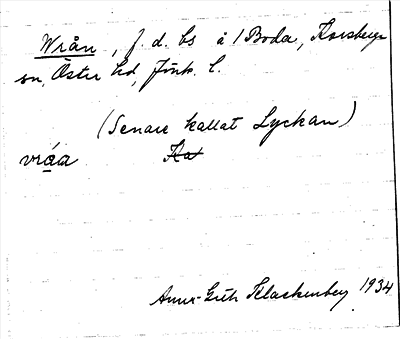 Wrån, f. d. bs å 1 Boda, Korsberga
sn, Östra hd, Jönk. l.
(Senare kallat Lyckan)
vráa
Ka
Anna-Greta Klackenberg 1934